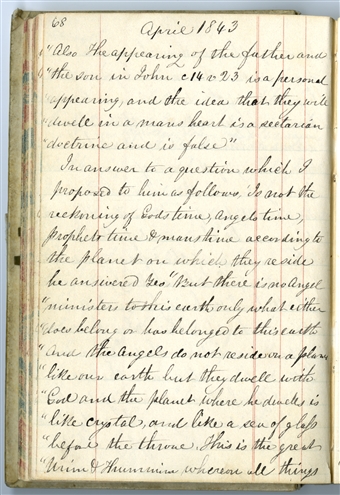 68
April 1843
"Also the appearing of the father and
"the son in John c14 v 23 is a personal
appearing and the idea that they will
"dwell in a mans heart is a sectarian
"doctrine and is false"
In answer to a question which I
proposed to him as follows, 'Is not the
reckoning of Gods time, angels time,
prophets time & mans time according to
the planet on which they reside
he answered Yes "But there is no Angel
"ministers to this earth only what either
"does belong or has belonged to this earth
"and the angels do not reside on a planet
"like our earth but they dwell with
"God and the planet where he dwells is
"like crystal, and like a sea of glass
"before the throne. This is the great
"Urim & Thummim whereon all things